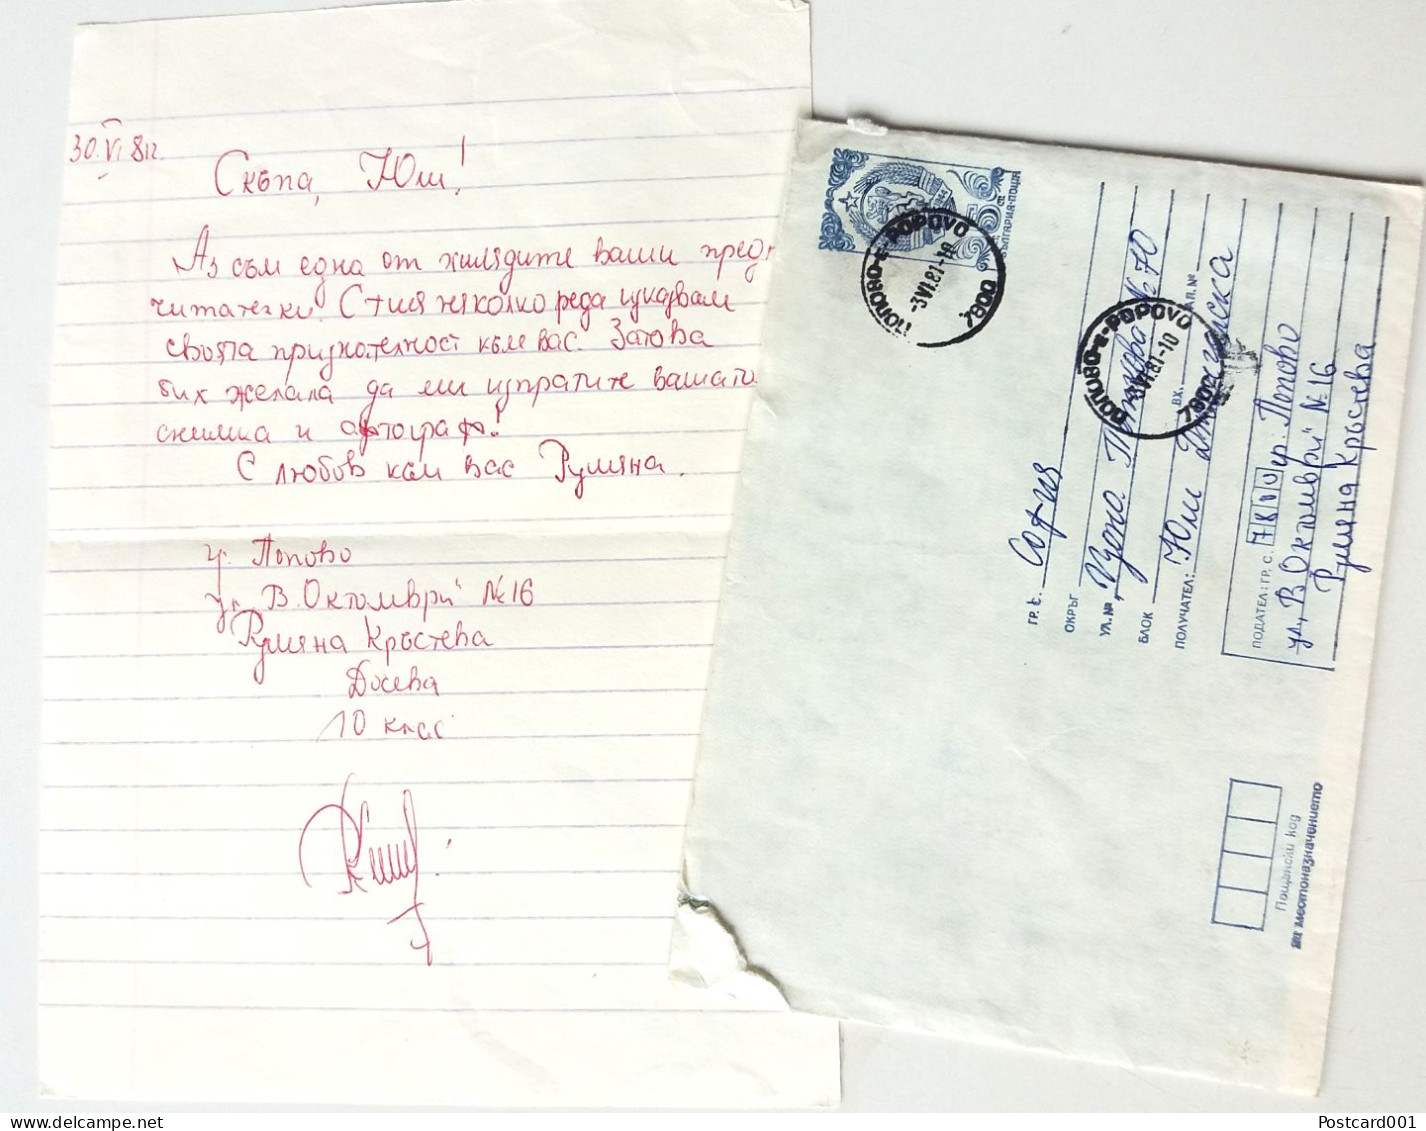 30.VI 81г.
Скъпа, Юли!
Аз съм една от хилядите ваши пред
читателки. С тия няколко реда изказвам
своята признателност към вас. Затова
бих желала да ми изпратите вашата
снимка и автограф!
С любов към вас Румяна.
гр. Попово
ул. В. Октомври" №16
Румяна Кръстева
Досева
10 клас
БЪЛГАРИЯ·ПОЩА
ПОПОВО-Е-POPOVO
-3VI.81-10
7800
ПОПОВО-Е-POPOVO
-3VI.81-10
7800
ГР. С. София
ОКРЪГ
УЛ. №, Цоно №70
БЛОК ВХ. АП. №
ПОЛУЧАТЕЛ: Юли
ПОДАТЕЛ: ГР. С. 7800 гр. Попово
ул. В Октомври" №16
Румяна Кръстева
Пощенски код
на местоназначението
Postcard001